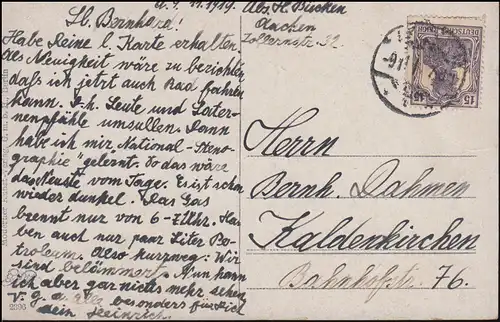 d. 9. 11. 1919. Abs. H. Bischen
Aachen
Zollernstr. 32
Lb. Bernhard!
Habe Deine l. Karte erhalten.
Als Neuigkeit wäre zu berichten
daß ich jetzt auch Rad fahren
kann. D.h. Leute und Later-
nenpfähle umsullen. Dann
habe ich mir "National-Steno-
graphie" gelernt. So das wäre
das Neuste vom Tage. Es ist schon
wieder dunkel. Das Gas
brennt nur von 6-7 Uhr. Ha-
ben auch nur ganz Liter Pe-
troleum. Also kurzweg: Wir
sind belämmert. Nun kann
ich aber gar nichts mehr sehen
V. g. besonders für Dich
dein Heinrich.
Herrn
Bernh. Dahmen
Kaldenkirchen
Bahnhofstr. 76.
DEUTSCHES REICH
15
2996